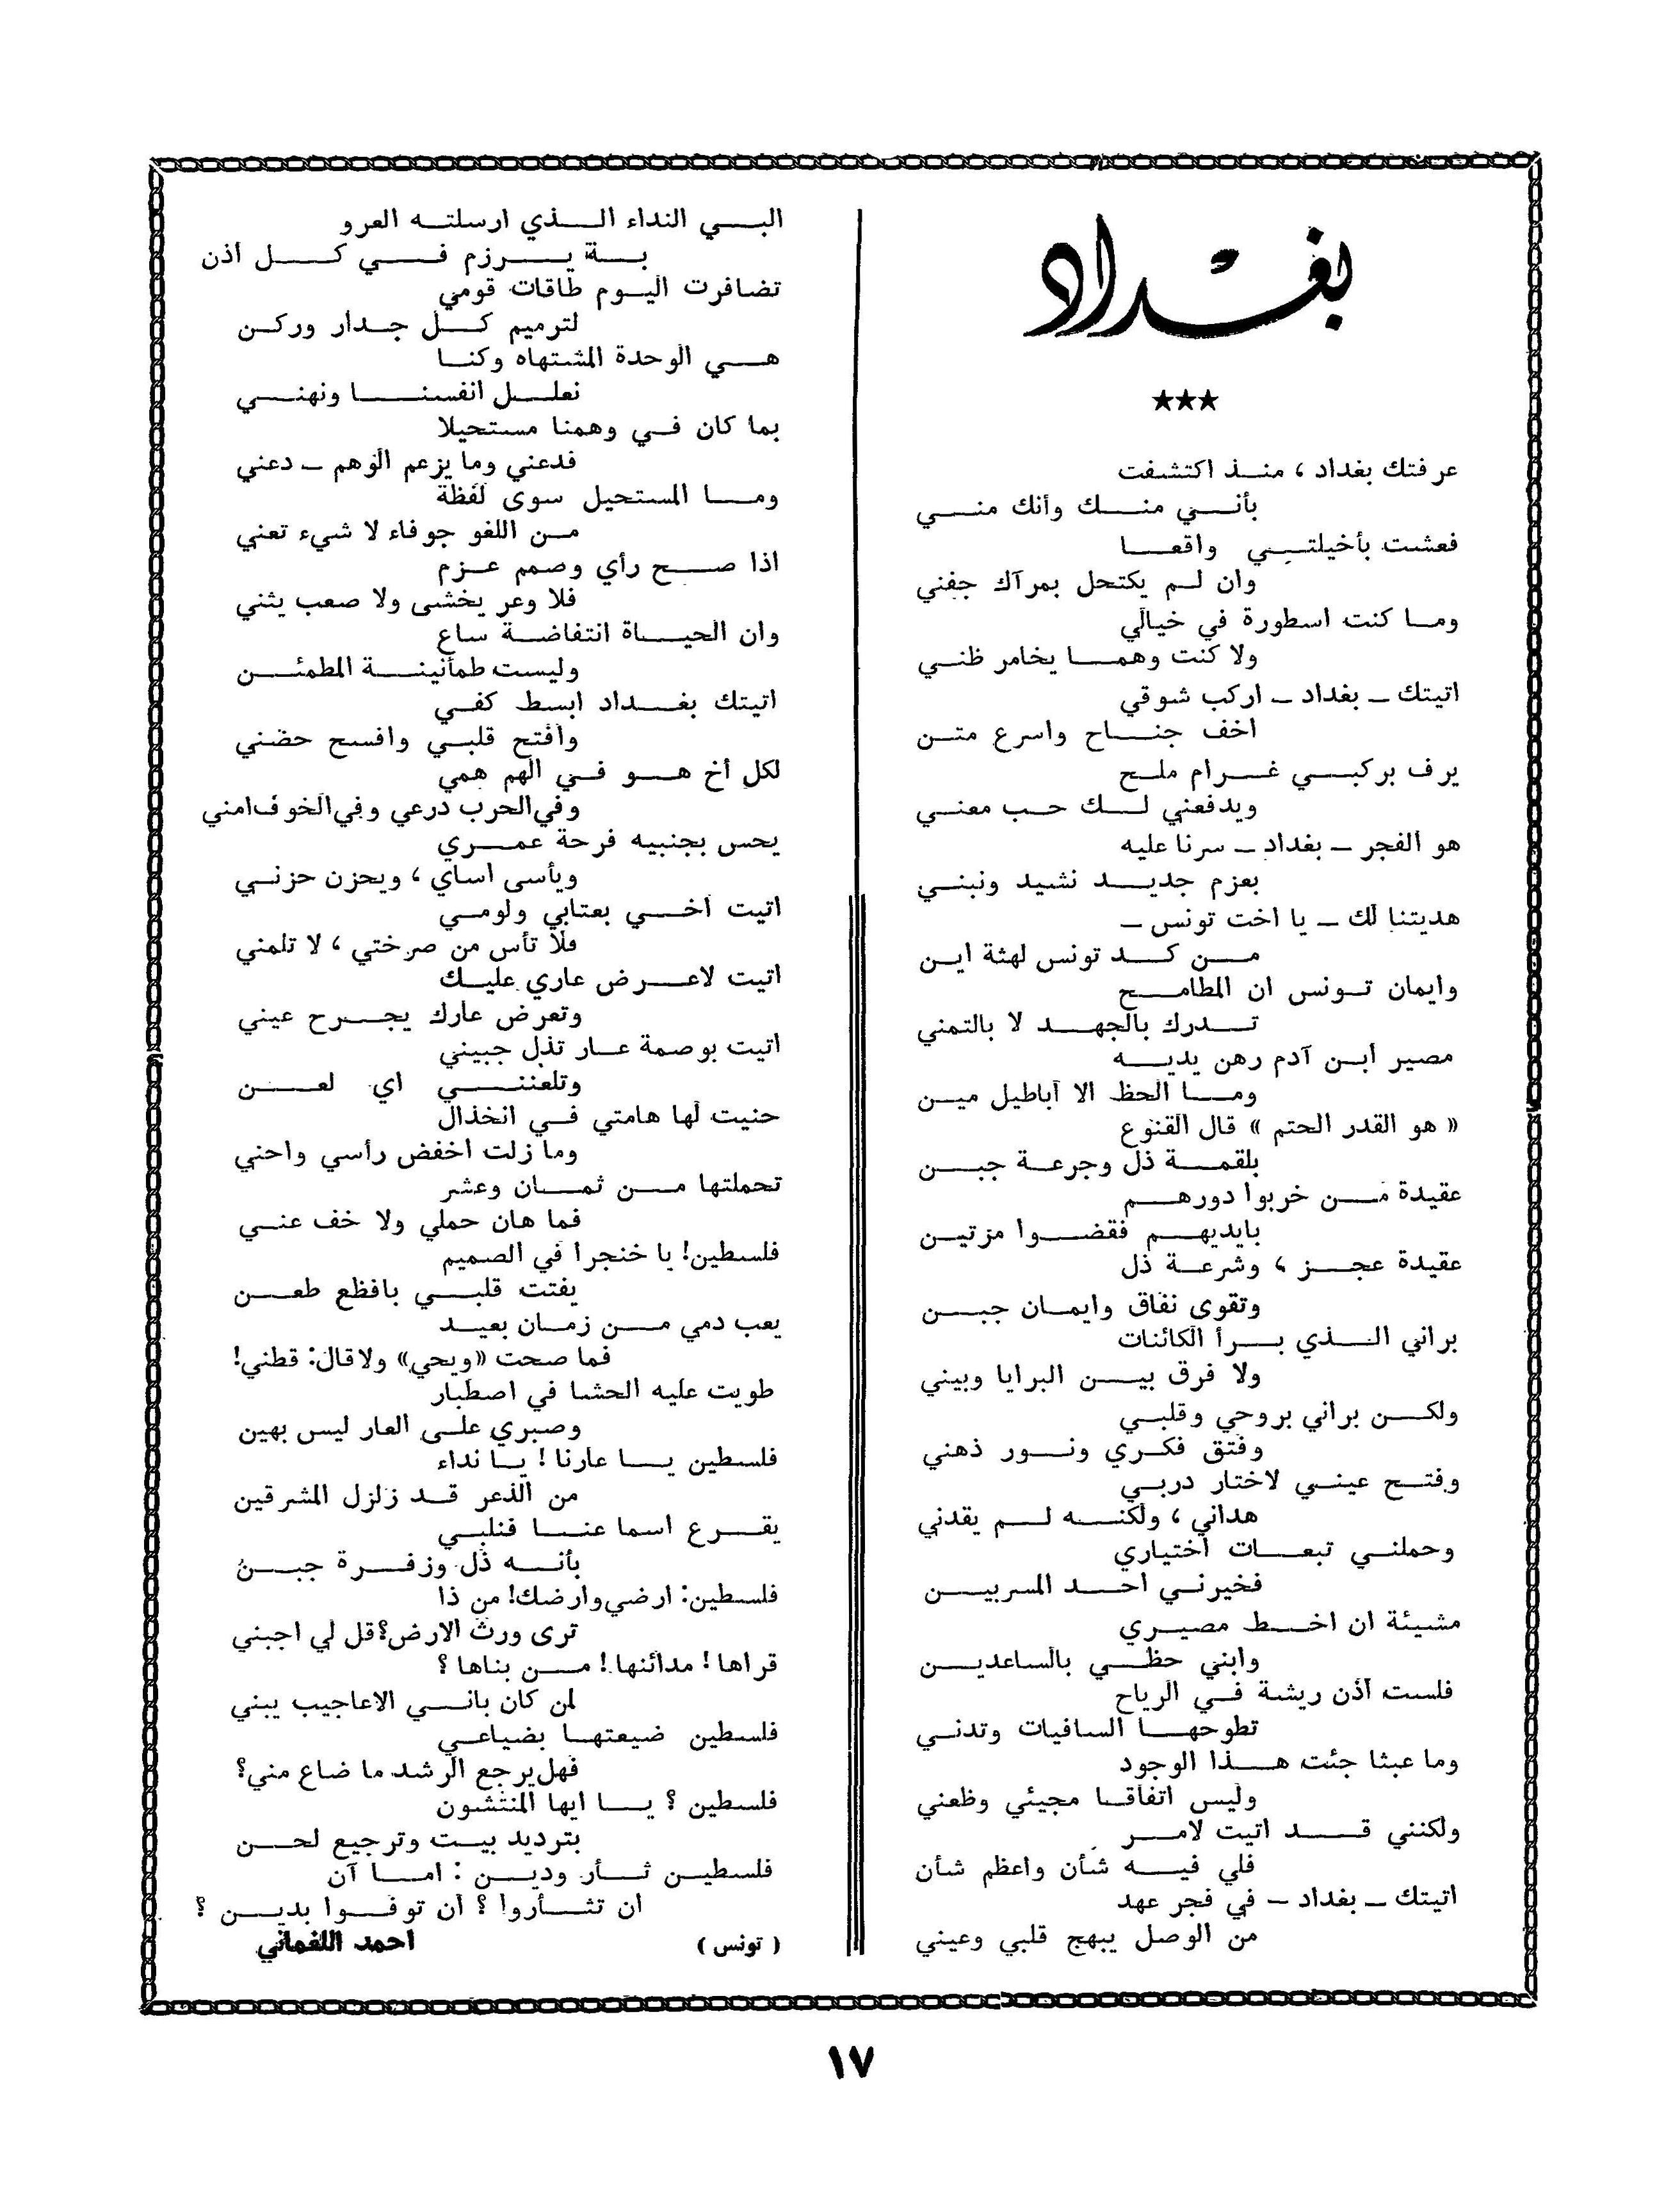 بغداد
★★★
عرفتك بغداد ، منذ اكتشفت
بأني منك وأنك مني
فعشت بأخيلتي واقعا
وان لم يكتحل بمرآك جفني
وما كنت اسطورة في خيالي
ولا كنت وهما يخامر ظني
اتيتك ـ بغداد ـ اركب شوقي
اخف جناح واسرع متن
يرف بركبي غرام ملح
ويدفعني لك حب معني
هو الفجر ـ بغداد ـ سرنا عليه
بعزم جديد نشيد ونبني
هديتنا لك ـ يا اخت تونس ـ
من كد تونس لهثة اين
وايمان تونس ان المطامح
تدرك بالجهد لا بالتمني
مصير ابن آدم رهن يديه
وما الحظ الا آباطيل مين
« هو القدر الحتم » قال القنوع
بلقمة ذل وجرعة جبن
عقيدة من خربوا دورهم
بايديهم فقضوا مزتين
عقيدة عجز ، وشرعة ذل
وتقوى نفاق وايمان جبن
براني الذي برأ الكائنات
ولا فرق بين البرايا وبيني
ولكن براني بروحي وقلبي
وفتق فكري ونور ذهني
وفتح عيني لاختار دربي
هداني ، ولكنه لم يقدني
وحملني تبعات اختياري
فخيرني احد المسربين
مشيئة ان اخط مصيري
وابني حظي بالساعدين
فلست آذن ريشة في الرياح
تطوحها السافيات وتدني
وما عبثا جئت هذا الوجود
وليس اتفاقا مجيئي وظعني
ولكنني قد اتيت لامر
فلي فيه شأن واعظم شأن
اتيتك ـ بغداد ـ في فجر عهد
من الوصل يبهج قلبي وعيني
البي النداء الذي ارسلته العرو
بة يرزم في كل اذن
تضافرت اليوم طاقات قومي
لترميم كل جدار وركن
هي الوحدة المشتهاه وكنا
نعلل انفسنا ونهني
بما كان في وهمنا مستحيلا
فدعني وما يزعم الوهم ـ دعني
وما المستحيل سوى لفظة
من اللغو جوفاء لا شيء تعني
اذا صح رأي وصمم عزم
فلا وعر يخشى ولا صعب يثني
وان الحياة انتفاضة ساع
وليست طمأنينة المطمئن
اتيتك بغداد ابسط كفي
وأفتح قلبي وافسح حضني
لكل أخ هو في الهم همي
وفي الحرب درعي وفي الخوف امني
يحس بجنبيه فرحة عمري
ويأسى اساي ، ويحزن حزني
اتيت أخي بعتابي ولومي
فلا تأس من صرختي ، لا تلمني
اتيت لاعرض عاري عليك
وتعرض عارك يجرح عيني
اتيت بوصمة عار تذل جبيني
وتلعنني اي لعن
حنيت لها هامتي في انخذال
وما زلت اخفض رأسي واحني
تحملتها من ثمان وعشر
فما هان حملي ولا خف عني
فلسطين! يا خنجرا في الصميم
يفتت قلبي بافظع طعن
يعب دمي من زمان بعيد
فما صحت «ويحي» ولا قال: قطني!
طويت عليه الحشا في اصطبار
وصبري على العار ليس بهين
فلسطين يا عارنا ! يا نداء
من الذعر قد زلزل المشرقين
يقرع اسماعنا فنلبي
بأنه ذل وزفرة جبن
فلسطين: ارضي وارضك! من ذا
ترى ورث الارض؟ قل لي اجبني
قراها ! مدائنها ! من بناها ؟
لمن كان باني الاعاجيب يبني
فلسطين ضيعتها بضياعي
فهل يرجع الرشد ما ضاع مني؟
فلسطين ؟ يا ايها المنتشون
بترديد بيت وترجيع لحن
فلسطين ثأر ودين : اما آن
ان تثأروا ؟ أن توفوا بدين ؟
( تونس ) احمد اللغماني
١٧